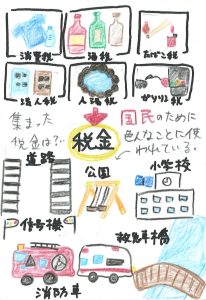 消費税 酒税 たばこ税
法人税 入湯税 ガソリン税
集まった
税金は?
税金
国民のために
色んなことに使
われている。
道路 公園 小学校
信号機
消防車 救急車 橋